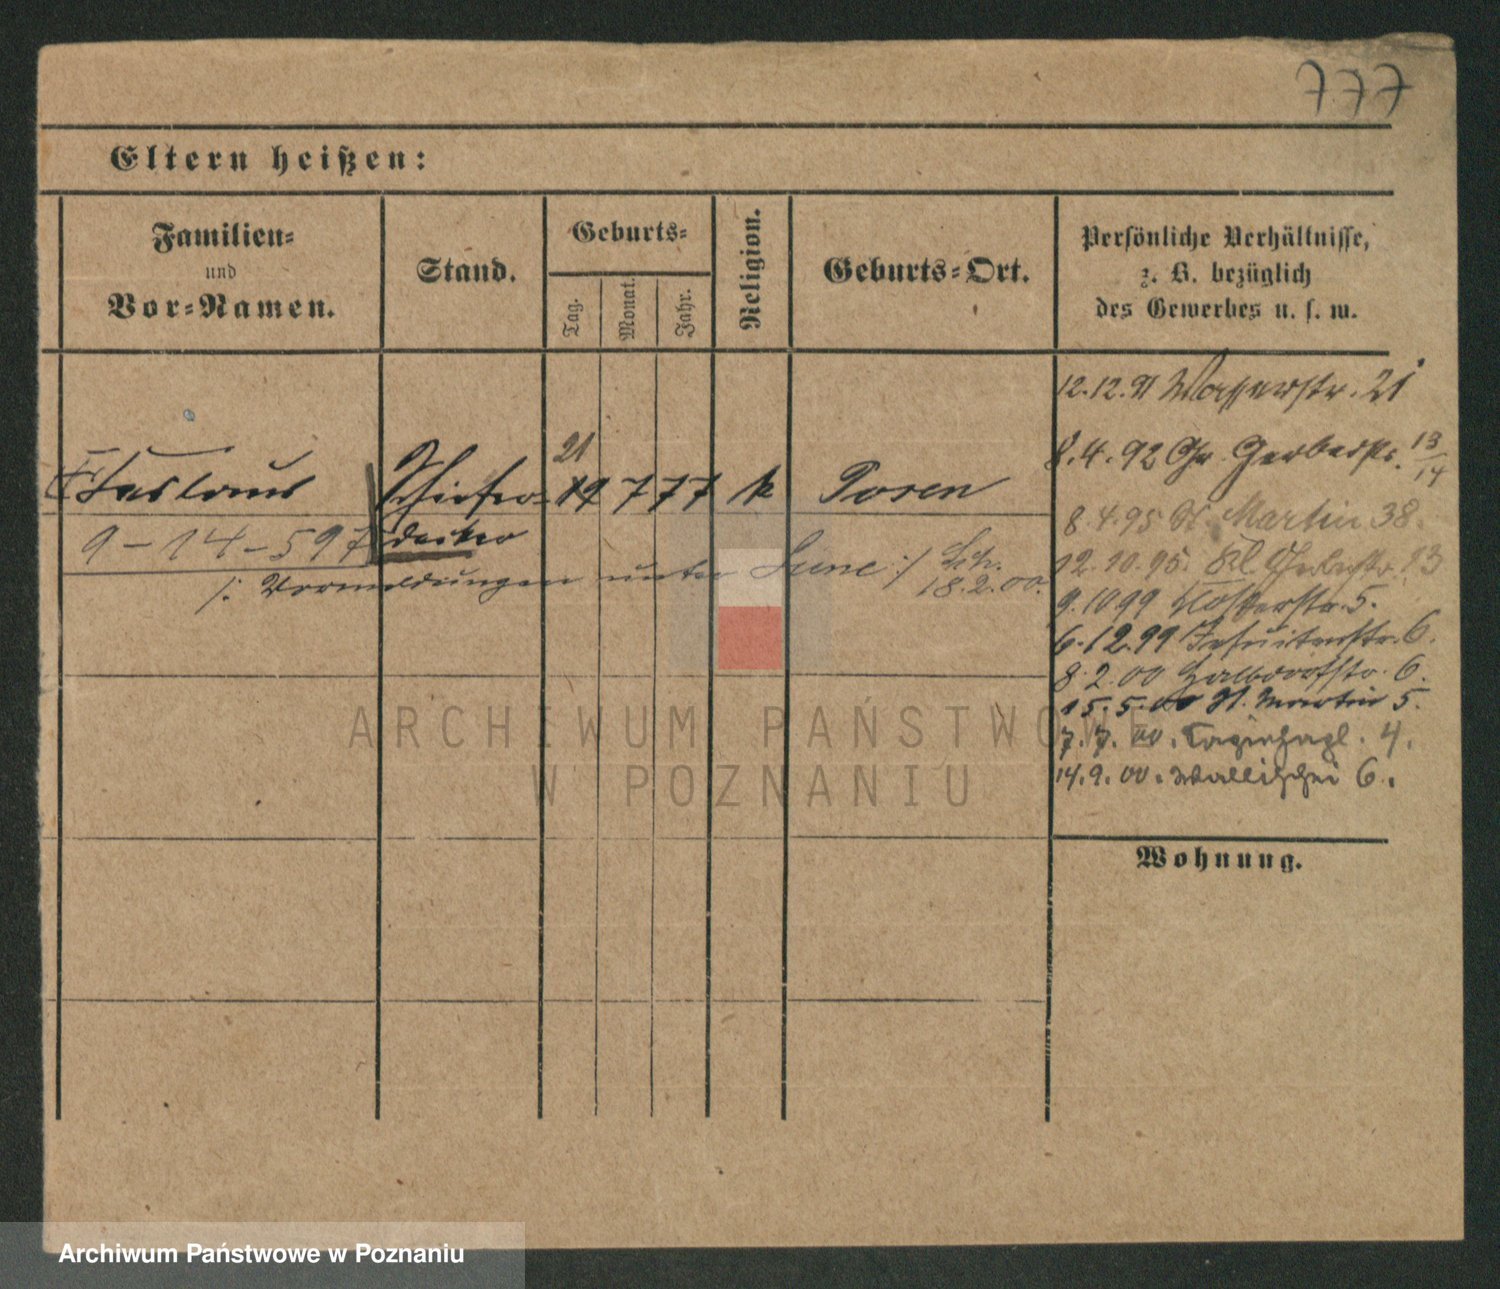 777
Eltern heißen:
Familien-
und
Vor-Namen.
Stand.
Geburts-
Tag.
Monat.
Jahr.
Religion.
Geburts-Ort.
Persönliche Verhältnisse,
z. B. bezüglich
des Gewerbes u. s. w.
12.12.91 Wasserstr. 21
8.4.92 Gr. Gerberstr. 13/14
8.4.95 St. Martin 38.
12.10.95. Kl. Gerberstr. 13
9.10.99 Klosterstr. 5.
6.12.99 Jesuitenstr. 6.
8.2.00 Halbdorfstr. 6.
15.5.00 St. Martin 5.
7.7.00. 4.
14.9.00. Wallischei 6.
21
Schiefer-
19 7 77 k Posen
decker
9-14-597
/: Vormeldungen unter :/
18.2.00.
Wohnung.
ARCHIWUM PAŃSTWOWE
W POZNANIU
Archiwum Państwowe w Poznaniu